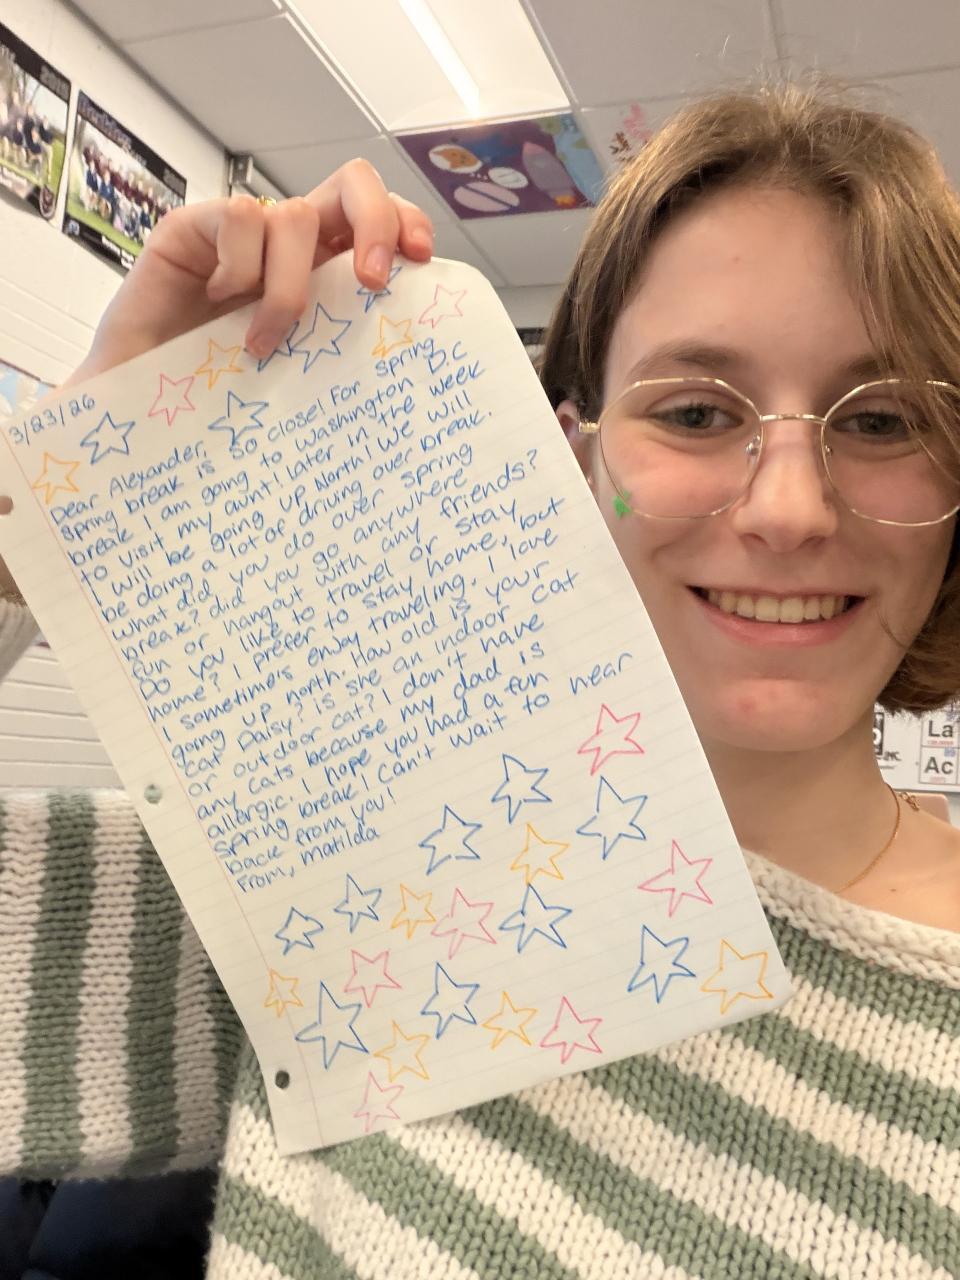 3/23/26
Dear Alexander,
Spring break is so close! For spring
break I am going to Washington D.C
to visit my aunt! Later in the week
I will be going up North! We will
be doing a lot of driving over break.
What did you do over spring
break? did you go anywhere
fun or hangout with any friends?
Do you like to travel or stay
home? I prefer to stay home, but
I sometimes enjoy traveling. I love
going up north. How old is your
cat Daisy? is she an indoor cat
or outdoor cat? I don't have
any cats because my dad is
allergic. I hope you had a fun
spring break I can't wait to hear
back from you!
From, Matilda
La
Ac